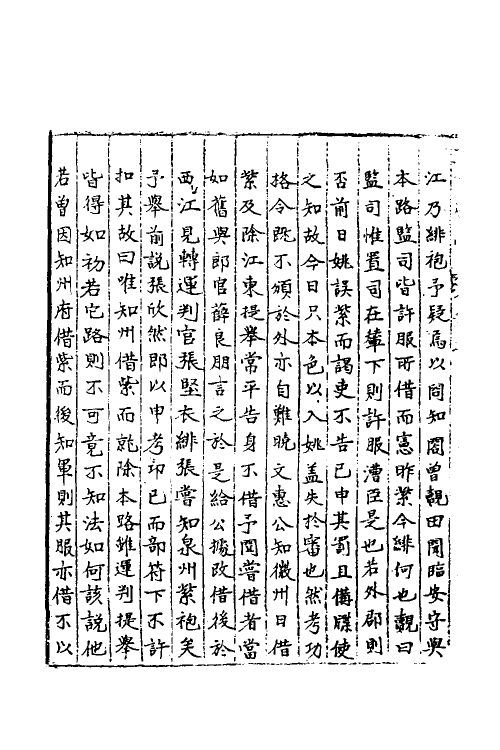 江乃緋袍予疑焉以問知閤曽覿田聞臨安守與
本路監司皆許服所借而憲昨紫今緋何也覿曰
監司惟置司在輦下則許服漕臣是也若外郡則
否前日姚誤紫而謁吏不告已申其罰且備牒使
之知故今日只本色以入姚盖失於審也然考功
格令既不頒於外亦自難曉文惠公知徽州日借
紫及除江東提舉常平告身不借予聞嘗借者當
如舊與郎官薛良朋言之於是給公據改借後於
西江見轉運判官張堅衣緋張嘗知泉州紫袍矣
予舉前說張欣然即以申考功已而部符下不許
扣其故曰唯知州借紫而就除本路雖運判提舉
皆得如初若它路則不可竟不知法如何該說他
若曽因知州府借紫而後知軍則其服亦借不以